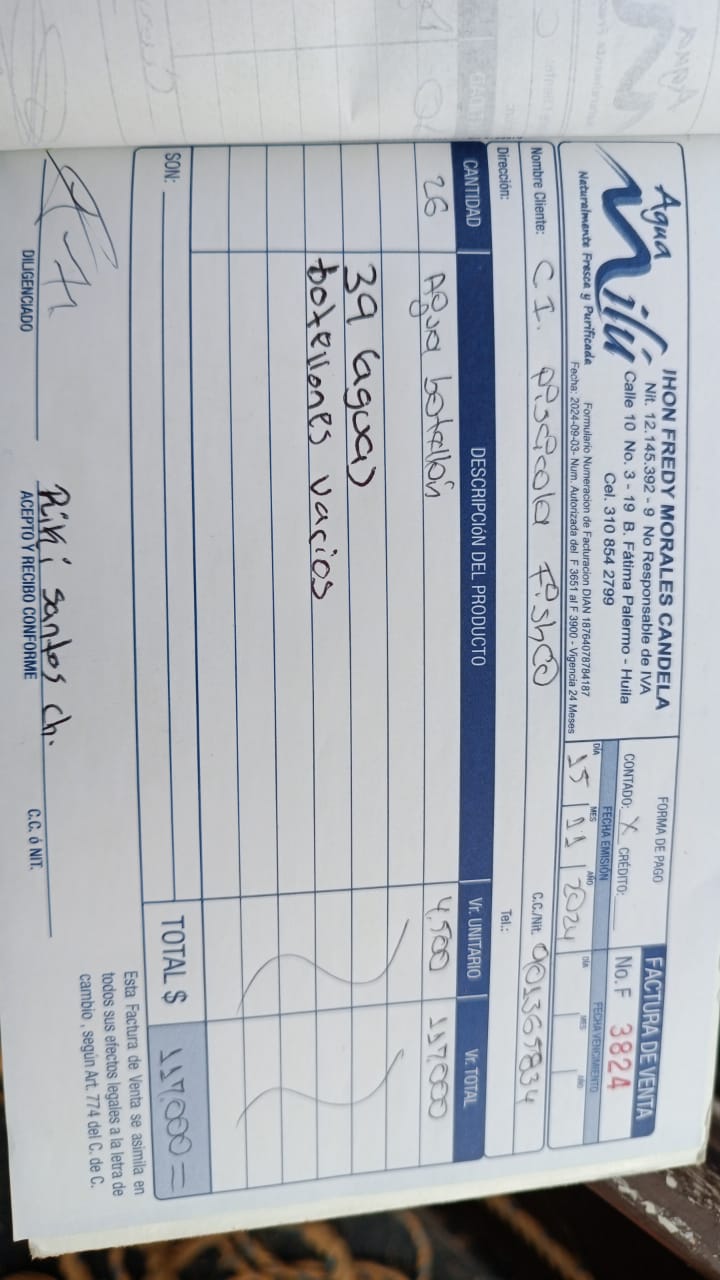 Agua
Nilú
Naturalmente Fresca y Purificada
JHON FREDY MORALES CANDELA
Nit. 12.145.392 - 9 No Responsable de IVA
Calle 10 No. 3 - 19 B. Fátima Palermo - Huila
Cel. 310 854 2799
Formulario Numeracion de Facturacion DIAN 18764078784187
Fecha: 2024-09-03- Num. Autorizada del F 3651 al F 3900 - Vigencia 24 Meses
FORMA DE PAGO
CONTADO: X CRÉDITO:
FECHA EMISIÓN
DÍA MES AÑO
15 11 2024
FACTURA DE VENTA
No. F 3824
FECHA VENCIMIENTO
DÍA MES AÑO
Nombre Cliente: C.I. Piscicola Fishco C.C./Nit. 901369834
Dirección: Tel.:
CANTIDAD DESCRIPCIÓN DEL PRODUCTO Vr. UNITARIO Vr. TOTAL
26 Agua botellón 4.500 117.000
39 (agua)
botellones varios
SON: TOTAL $ 117.000=
Esta Factura de Venta se asimila en
todos sus efectos legales a la letra de
cambio, según Art. 774 del C. de C.
Riki santos ch.
DILIGENCIADO ACEPTO Y RECIBO CONFORME C.C. ó NIT.